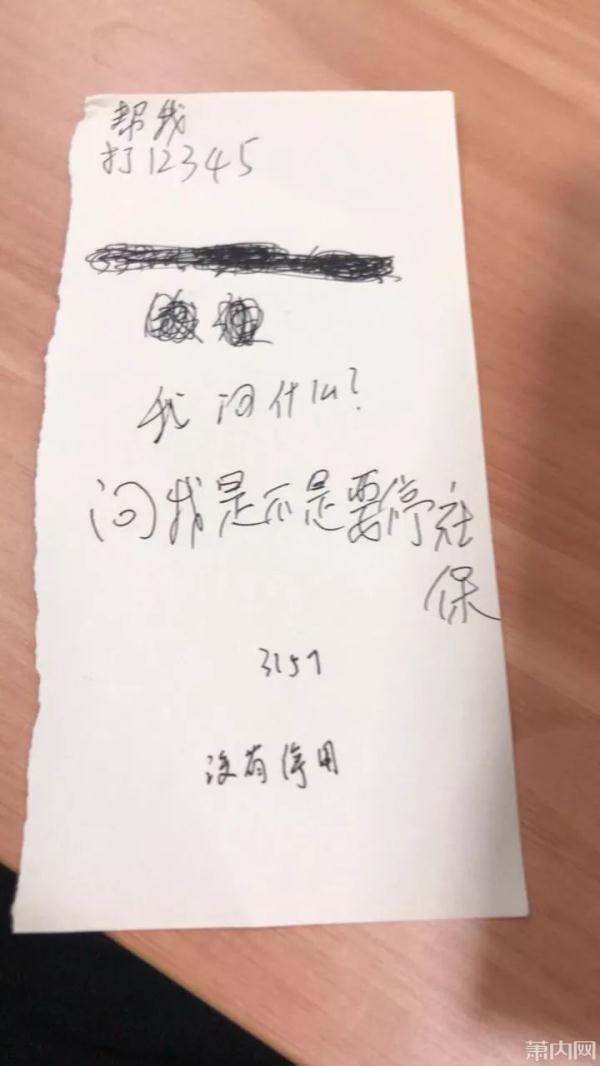 帮我
打12345
我问什么?
问我是不是要停社
保
3157
没有停用
萧内网